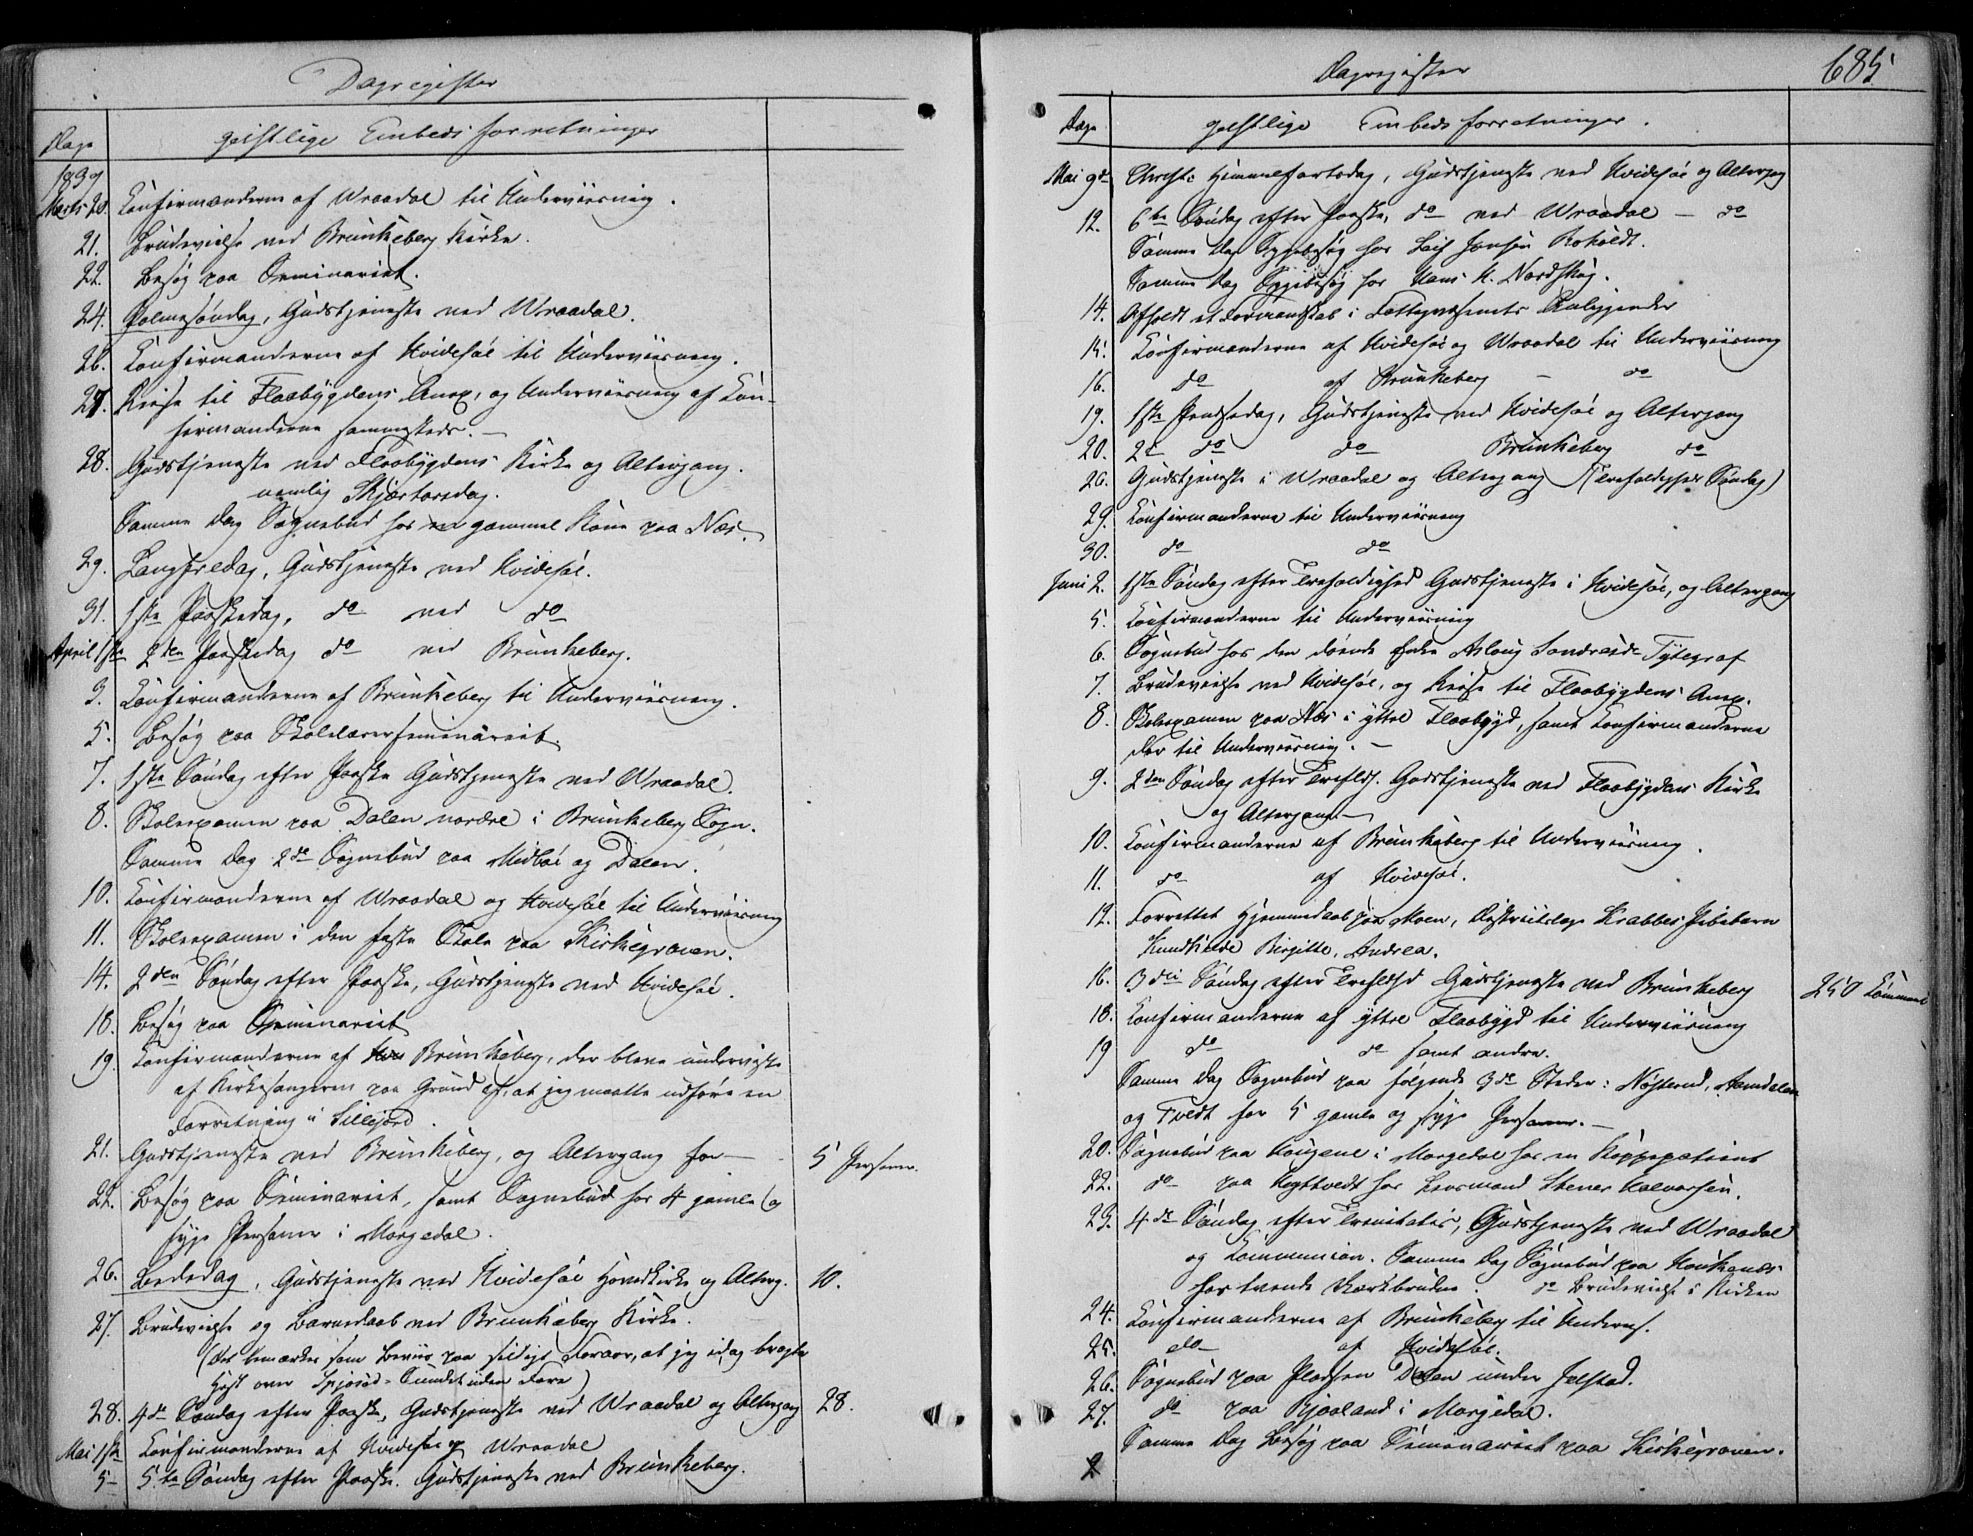 Dagregister
Dage
geistlige Embedsforretninger
1839
Marts 20. Confirmanderne af Wraadal til Underviisning.
21. Brudevielse ved Brunkeberg Kirke.
22. Besøg paa Seminariet.
24. Palmesøndag, Gudstjeneste ved Wraadal.
26. Confirmanderne af Hvidesøe til Underviisning.
27. Reise til Flaabygdens Anex, og Underviisning af Con-
firmanderne sammesteds. —
28. Gudstjeneste ved Flaabygdens Kirke og Altergang.
nemlig Skjærtorsdag.
Samme Dag Sognebud hos en gammel Kone paa Næs.
29. Langfredag, Gudstjeneste ved Hvidesøe.
31. 1ste Paaskedag, do ved do
April 1ste 2den Paaskedag do ved Brunkeberg.
3. Confirmanderne af Brunkeberg til Underviisning.
5. Besøg paa Skolelærerseminariet
7. 1ste Søndag efter Paaske Gudstjeneste ved Wraadal.
8. Skoleexamen paa Dalen nordre i Brunkeberg Sogn.
Samme Dag 2de Sognebud paa Midbøe og Dalen.
10. Confirmanderne af Wraadal og Hvidesøe til Underviisning
11. Skoleexamen i den faste Skole paa Kirkegraven.
14. 2den Søndag efter Paaske, Gudstjeneste ved Hvidesøe.
18. Besøg paa Seminariet
19. Confirmanderne af Brunkeberg, der bleve underviste
af Kirkesangeren paa Grund af, at jeg maatte udføre en
Forretning i Sillejord.
21. Gudstjeneste ved Brunkeberg, og Altergang for — 5 Personer.
22. Besøg paa Seminariet, samt Sognebud hos 4 gamle og
syge Personer i Morgedal.
26. Bededag, Gudstjeneste ved Hvidesøe Hovedkirke og Alterg. 10.
27. Brudevielse og Barnedaab ved Brunkeberg Kirke.
(det bemærkes som Beviis paa sildigt Foraar, at jeg idag bragte
Hest over Spjosod-Sundet uden Fare)
28. 4de Søndag efter Paaske, Gudstjeneste ved Wraadal og Altergang 28.
Mai 1ste Confirmanderne af Hvidesøe og Wraadal
5— 5te Søndag efter Paaske. Gudstjeneste ved Brunkeberg.
Dagregister
685
Dage
geistlige Embedsforretninger.
Mai 9de Christi Himmelfartsdag, Gudstjeneste ved Hvidesøe og Alterg
12. 6te Søndag efter Paaske, do ved Wraadal — do
Samme Dag Sygebesøg hos Leif Jonsen Roholdt.
Samme Dag Sygebesøg hos Hans H. Nordskog.
14. Afholdt et Formandskab i Fattigvæsenets Anliggender
15. Confirmanderne af Hvidesøe og Wraadal til Underviisning
16. do af Brunkeberg — do
19. 1ste Pindsedag, Gudstjeneste ved Hvidesøe og Altergang
20. 2d do do Brunkeberg do
26. Gudstjeneste i Wraadal og Altergang (Trefoldigheds Søndag)
29. Confirmanderne til Underviisning
30. do do
Juni 2. 1ste Søndag efter Trefoldighed Gudstjeneste i Hvidesøe, og Altergang
5. Confirmanderne til Underviisning
6. Sognebud hos den døende Enke Aslaug Sondresdr Tytegraf
7. Brudevielse ved Hvidesøe, og Reise til Flaabygdens Anex.
8. Skoleexamen paa Næs i yttre Flaabygd, samt Confirmanderne
der til Underviisning. —
9. 2den Søndag efter Trefldh. Gudstjeneste ved Flaabygdens Kirke
og Altergang —
10. Confirmanderne af Brunkeberg til Underviisning.
11. do af Hvidesøe.
12. Forrettet Hjemmedaab paa Moen, Distriktslæge Krabbes Pigebarn
Kundhilde Birgitte, Andrea.
16. 3die Søndag efter Trefoldh Gudstjeneste ved Brunkeberg 250 Commun
18. Confirmanderne af yttre Flaabygd til Underviisning
19 do do samt andre.
Samme Dag Sognebud paa følgende 3de Steder: Nøsterud, Aamdalen
og Tvedt for 5 gamle og syge Personer. —
20. Sognebud paa Hougene i Morgedal hos en Koppepatient
22. do paa Hegttvedt hos Lensmand Stener Halvorsen.
23. 4de Søndag efter Trinitatis, Gudstjeneste ved Wraadal
og Communion. Samme Dag Sognebud paa Houkenæs
hos tvende Værkbrudne. do Brudevielse i Kirken
24. Confirmanderne af Brunkeberg til Underv.
25. do af Hvidesøe.
26. Sognebud paa Pladsen Dalen under Jelstad.
27. do paa Bjaaland i Morgedal.
Samme Dag Besøg paa Seminariet paa Kirkegraven.